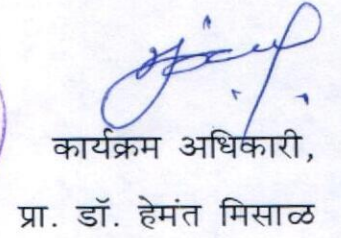 कार्यक्रम अधिकारी,
प्रा. डॉ. हेमंत मिसाळ